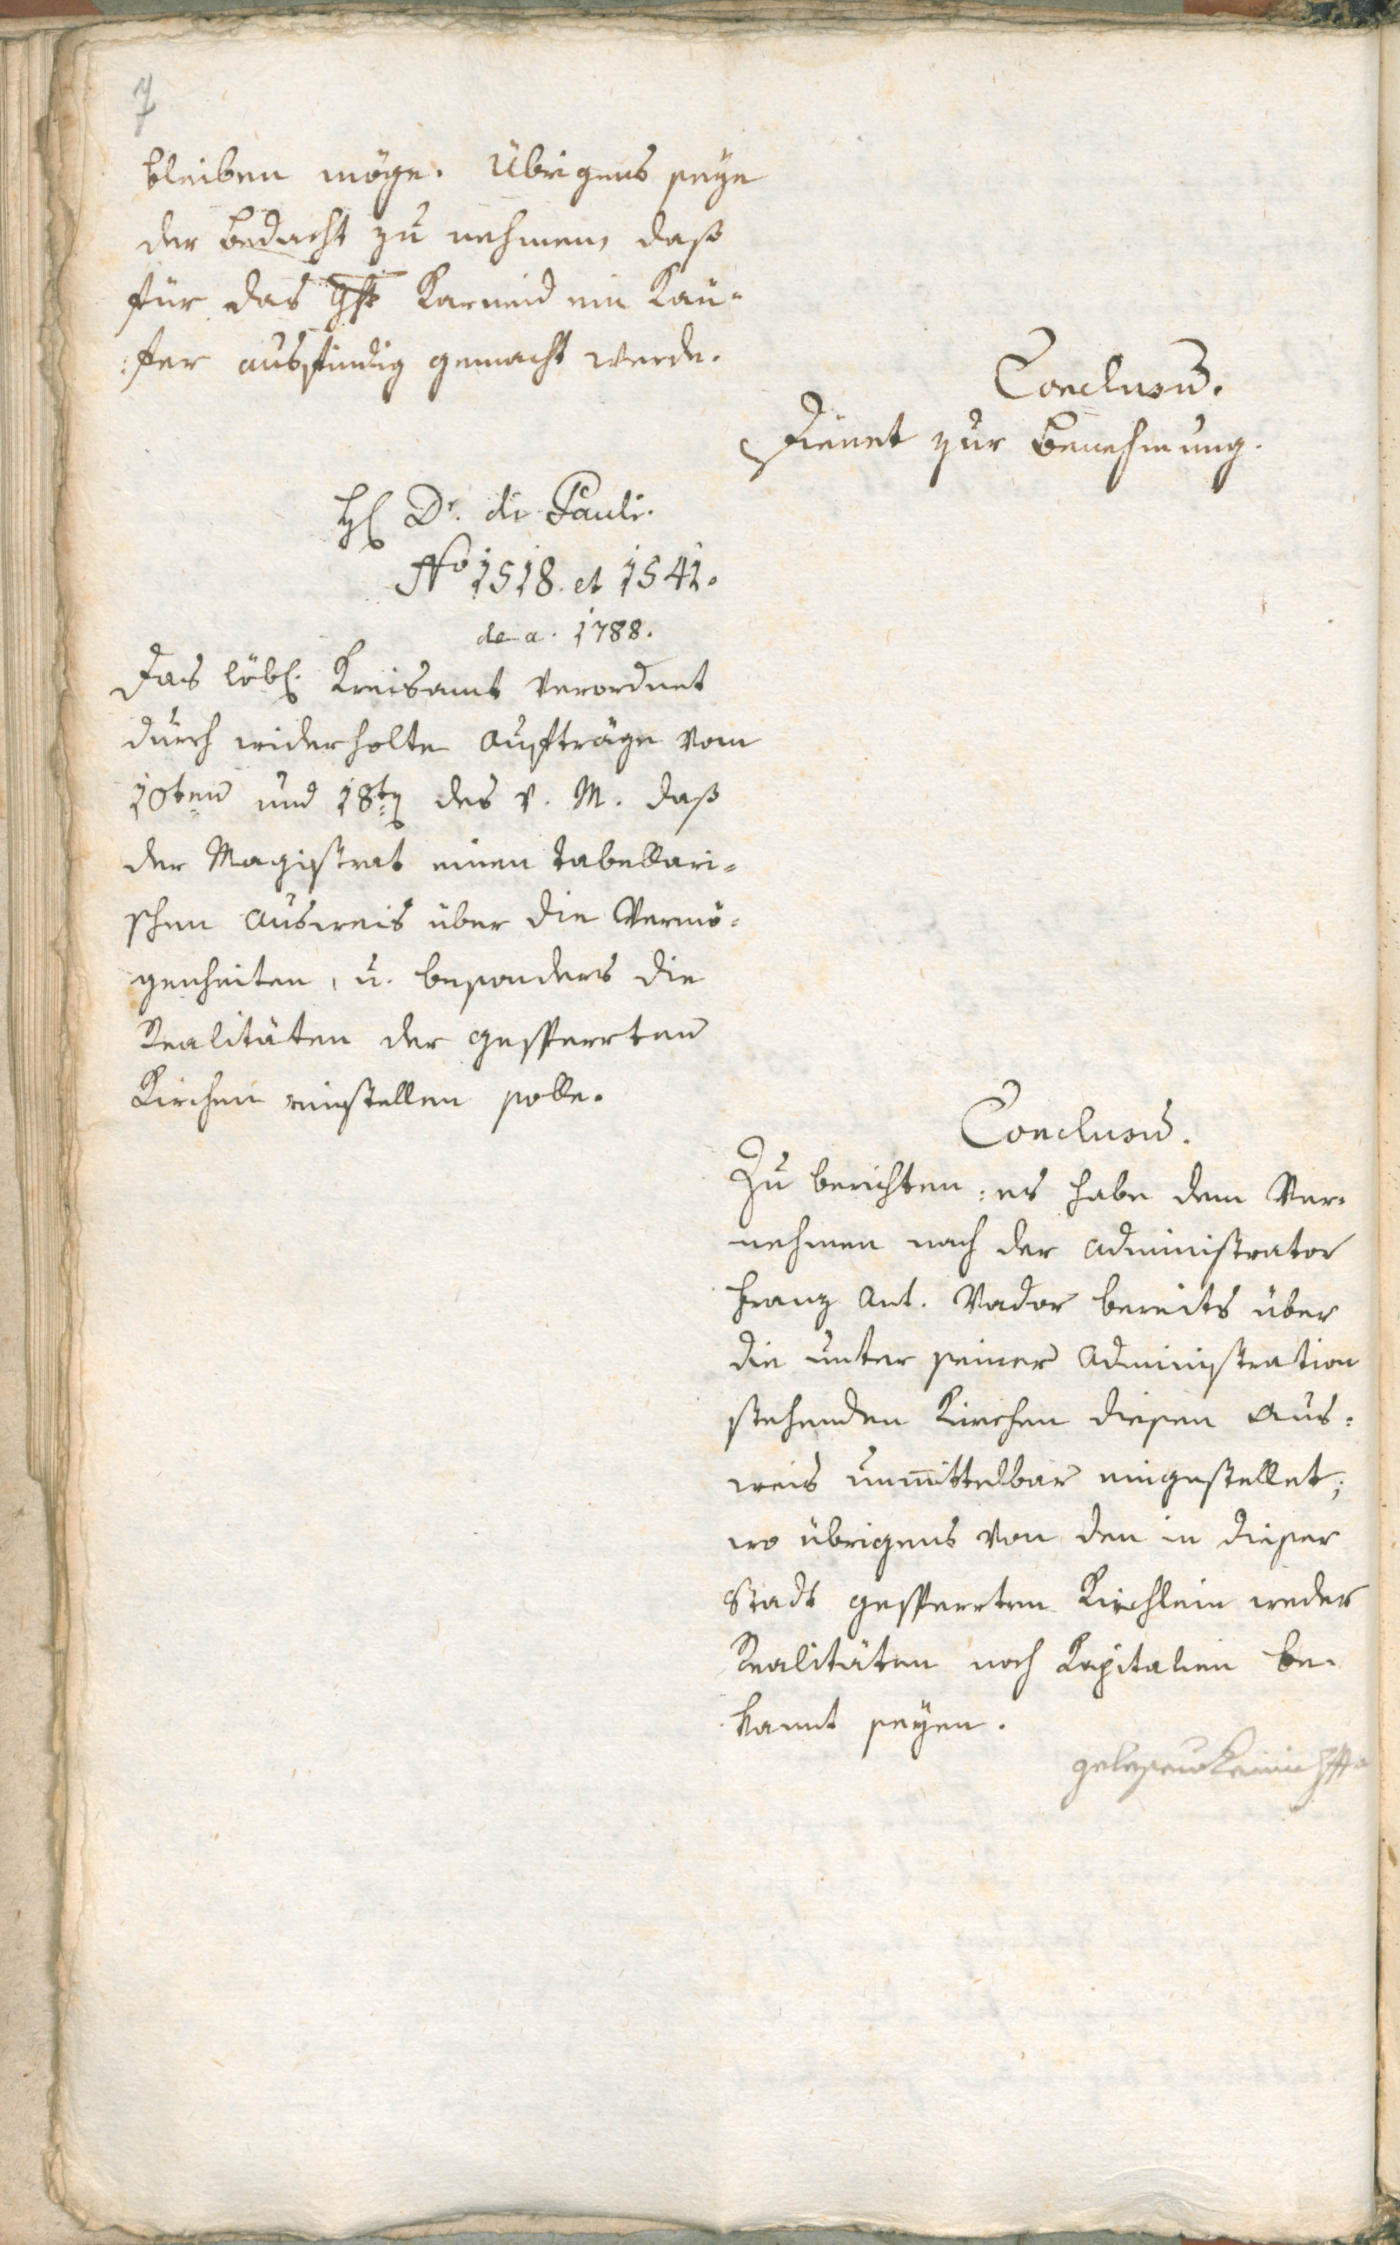 7
bleiben möge. Übrigens seye
der Bedacht zu nehmen, daß
für das Ght Karneid ein Käu-
:fer ausfindig gemacht werde.
Conclusũ.
Dienet zur Benehmung.
H. Dr. di Pauli.
No 1518. et 1541.
de a. 1788.
Das löbl. Kreisamt verordnet
durch widerholte Aufträge vom
10ten und 18ten des v. M. daß
der Magistrat einen tabellari-
schen Ausweis über die Vermö-
genheiten, u. besonders die
Realitäten der gesperrten
Kirchen einstellen solle.
Conclusũ.
Zu berichten: es habe dem Ver-
nehmen nach der Administrator
Franz Ant. Vador bereits über
die unter seiner Administration
stehenden Kirchen diesen Aus-
weis unmittelbar eingestellet;
wo übrigens von den in dieser
Stadt gesperrten Kirchlein weder
Realitäten noch Kapitalien be-
kannt seyen.
gelesen